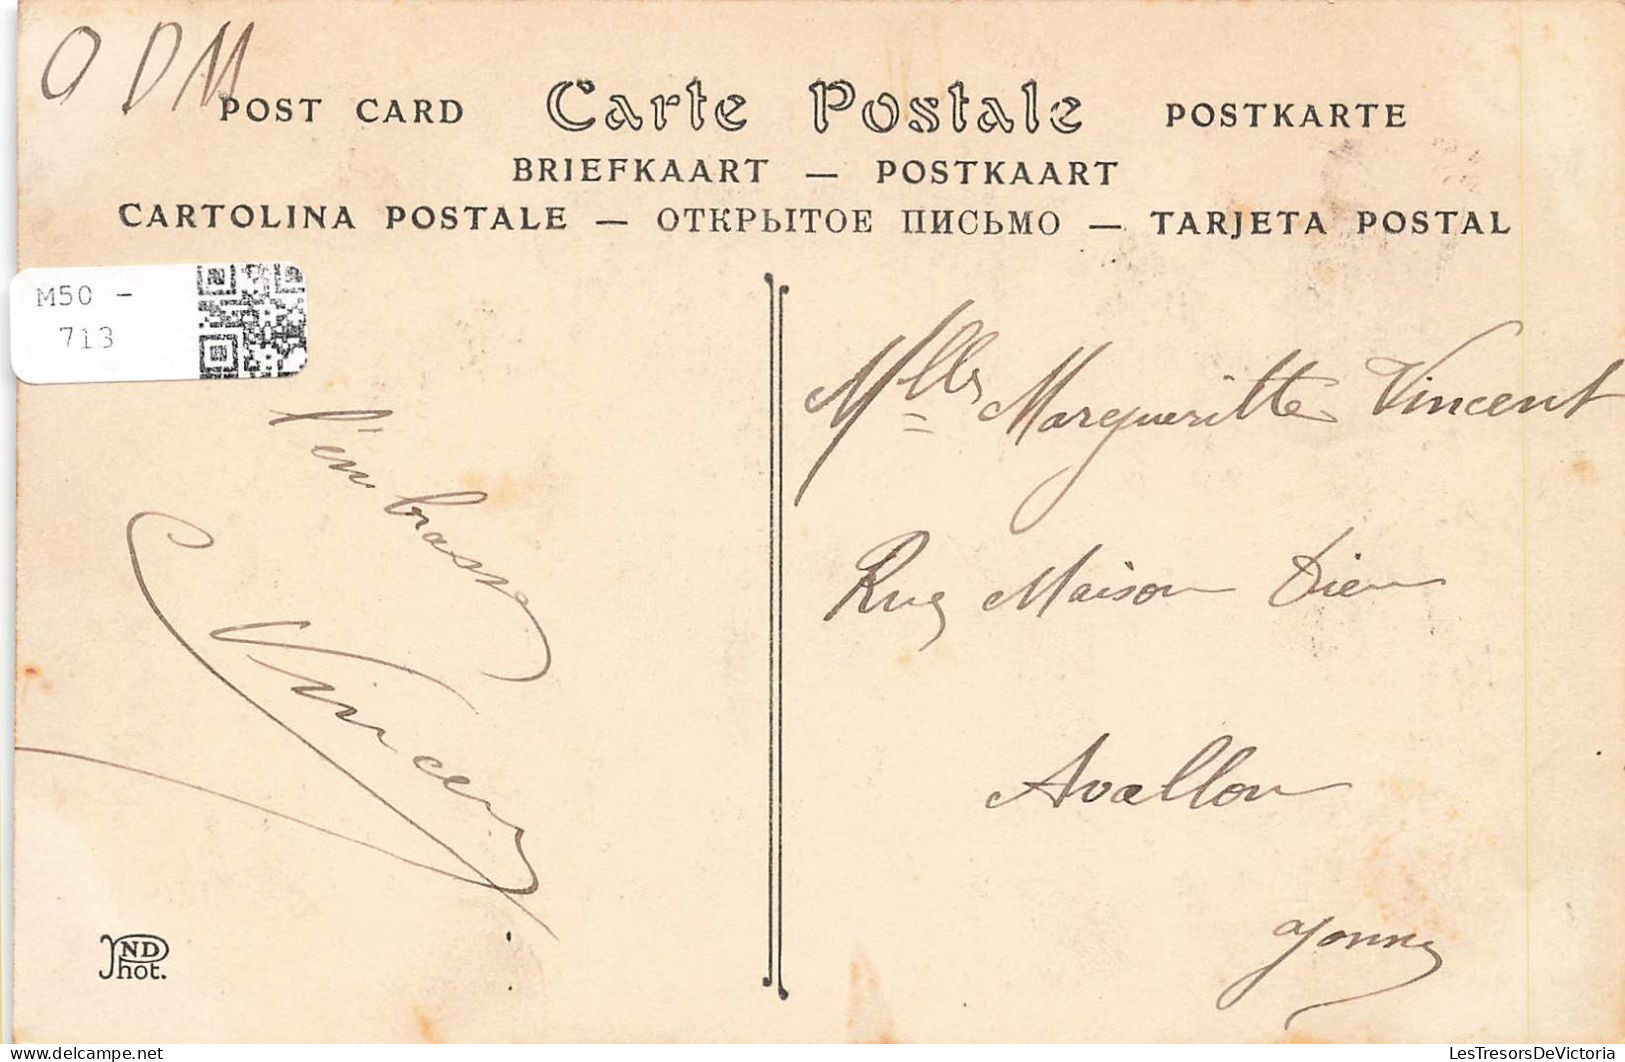 O D M
POST CARD Carte Postale POSTKARTE
BRIEFKAART — POSTKAART
CARTOLINA POSTALE — ОТКРЫТОЕ ПИСЬМО — TARJETA POSTAL
M50 -
713
t'embrasse
Vincent
Mlle Margueritte Vincent
Rue Maison Dieu
Avallon
Yonne
ND
Phot.
LesTresorsDeVictoria
delcampe.net